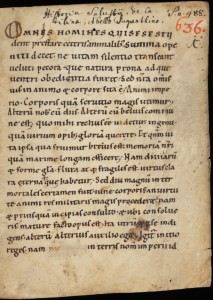 OMNES HOMINES QUI SESE STU
dent prestare ceteris animalibus summa ope
niti decet ne uitam silentio transeant
ueluti pecora que natura prona ad que
uentri obedientia finxit Sed nra omis
uis in animo & corpore sita e Animi impe
rio Corporis seruitio magis utimur
Alterum nob cu dis alteru cu beluis comu
ne est quo mihi rectius ee uidetur ingenii
qua uiriu opib gloria querere Et qm uita
ipsa qua fruimur breuis est memoria nri
qua maxime longam efficere Nam diuitiaru
& forme gla fluxa at & fragilis est uirtus cla
ra eternaq habetur Sed diu magnu inter
mortales certamen fuit uine corporis an uirtu
te animi res militaris magis procederet nam
& prius qua incipias consulto & ubi consulue
ris mature facto opus est Ita utruq p se indi
gens alteru alterius auxilio eget Igit initio
reges nam in terris nom imperii id
636.